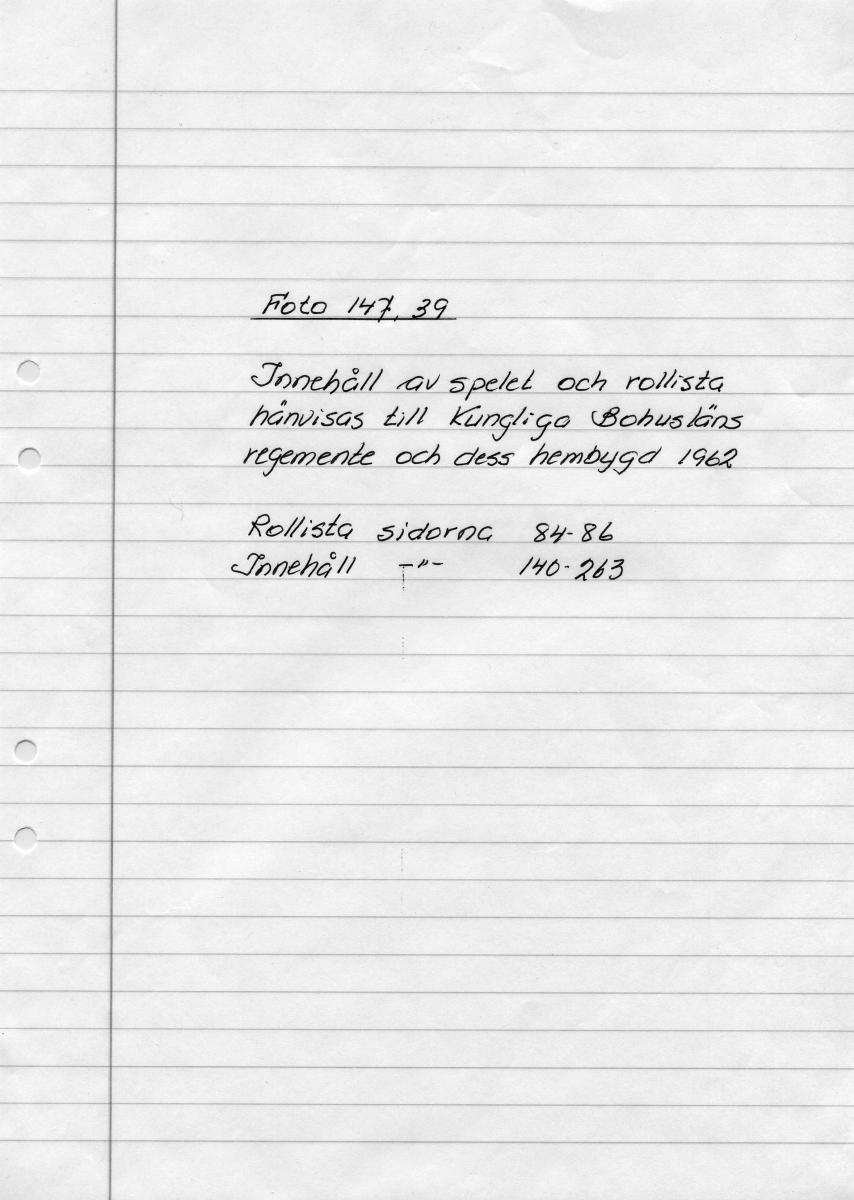 Foto 147, 39
Innehåll av spelet och rollista
hänvisas till Kungliga Bohusläns
regemente och dess hembygd 1962
Rollista sidorna 84-86
Innehåll -"- 140-263